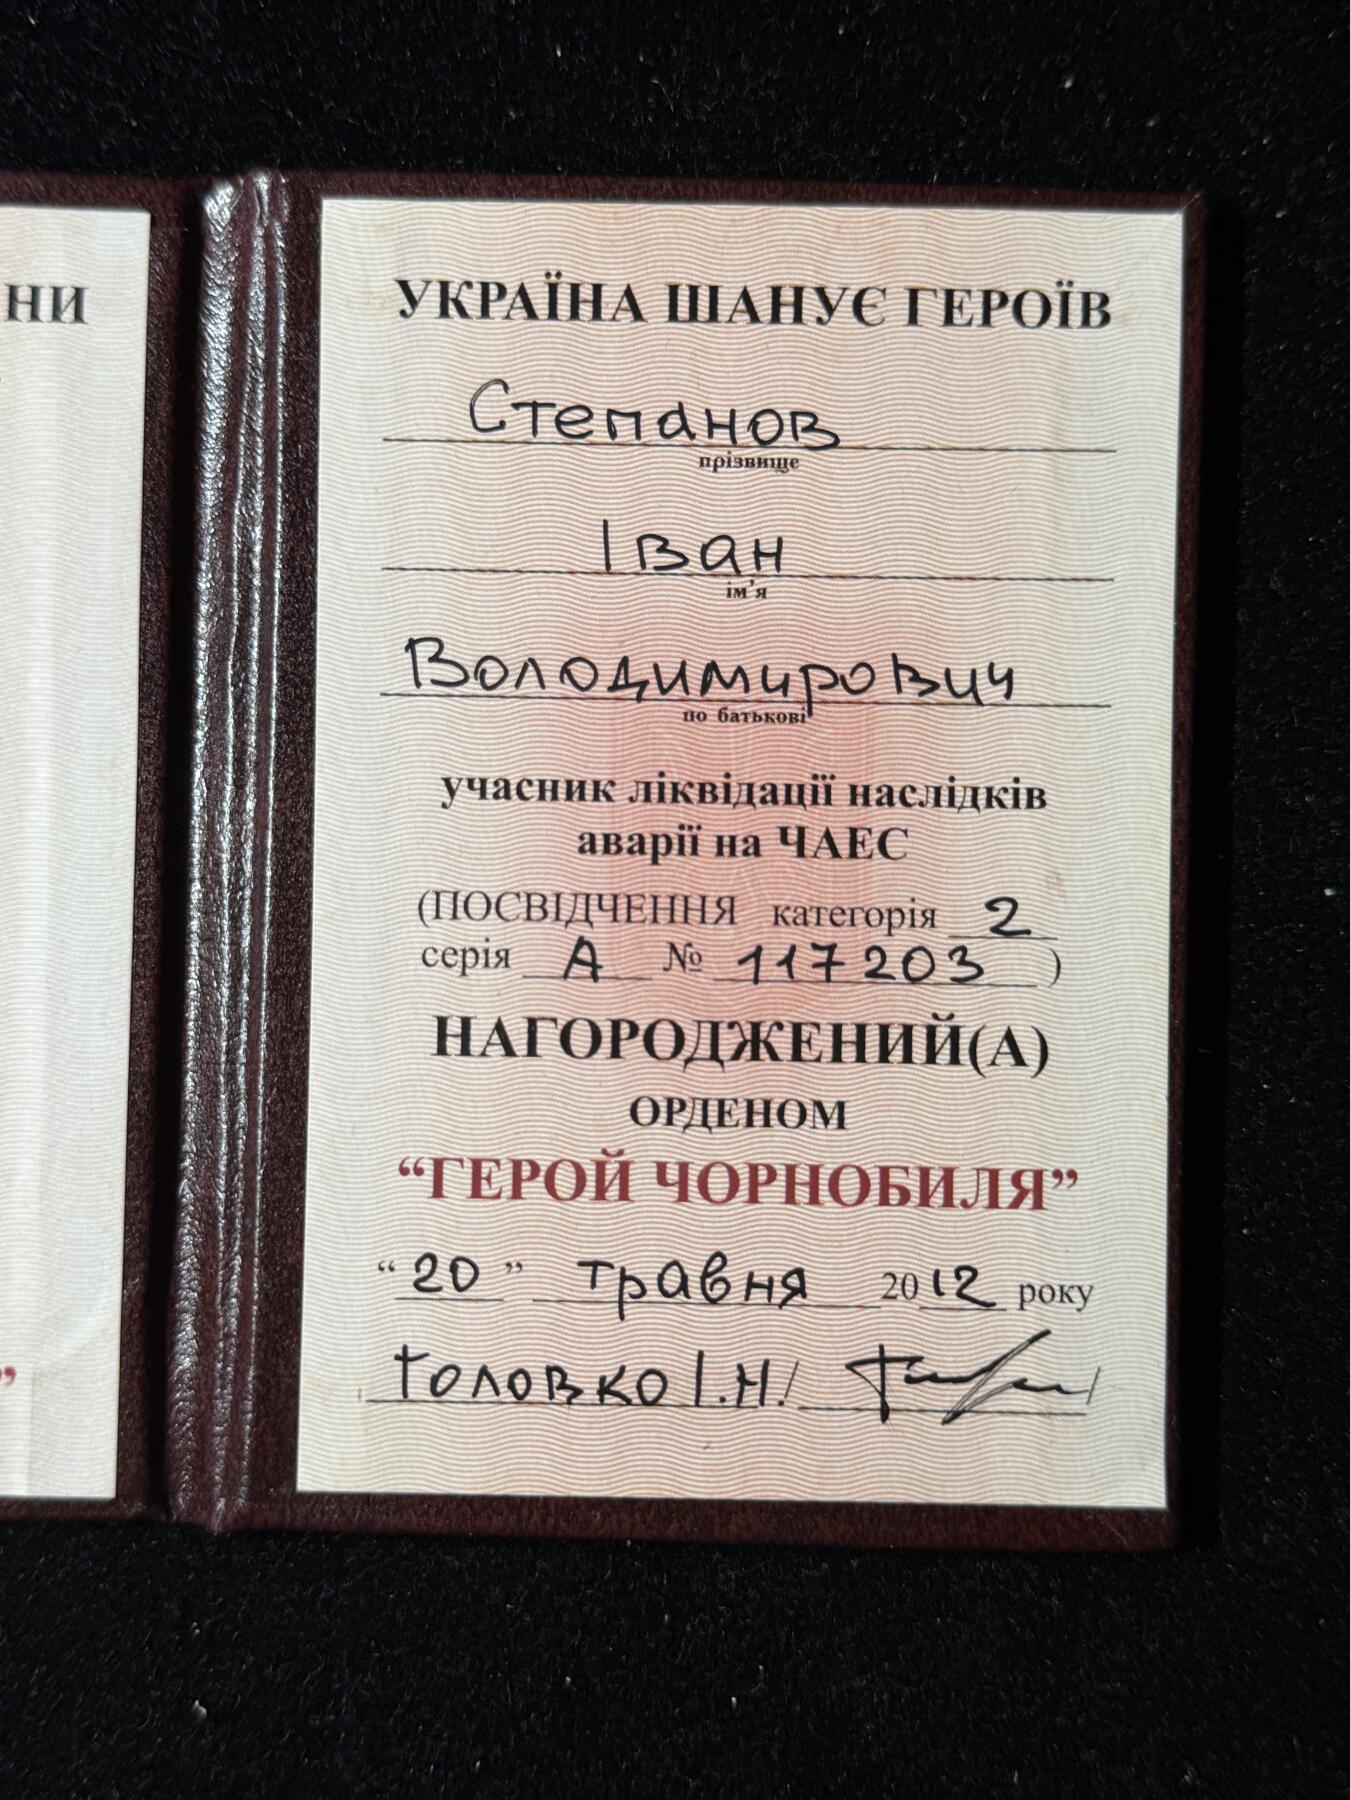 НИ
”
УКРАЇНА ШАНУЄ ГЕРОЇВ
Степанов
прізвище
Іван
ім'я
Володимирович
по батькові
учасник ліквідації наслідків
аварії на ЧАЕС
(ПОСВІДЧЕННЯ категорія 2
серія А № 117203 )
НАГОРОДЖЕНИЙ(А)
ОРДЕНОМ
“ГЕРОЙ ЧОРНОБИЛЯ”
“ 20 ” травня 2012 року
Головко І.Н/ /